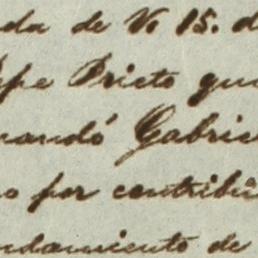 da de Vº 15. d
epe Prieto que
mandó Gabrie
o por contribu
ndamiento de